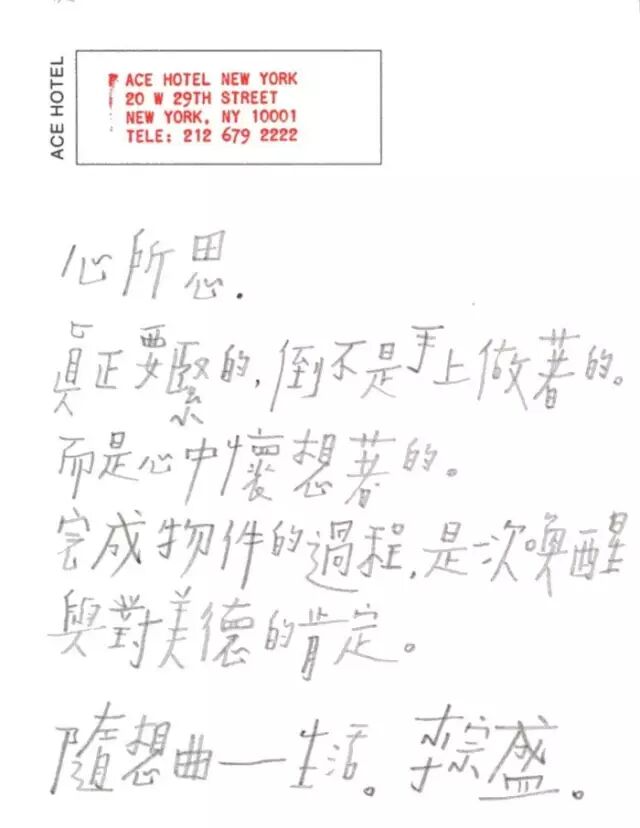 ACE HOTEL
ACE HOTEL NEW YORK
20 W 29TH STREET
NEW YORK, NY 10001
TELE: 212 679 2222
心所思.
真正要緊的,倒不是手上做著的。
而是心中懷想著的。
完成物件的過程,是一次喚醒
與對美德的肯定。
隨想曲——生活。李宗盛。